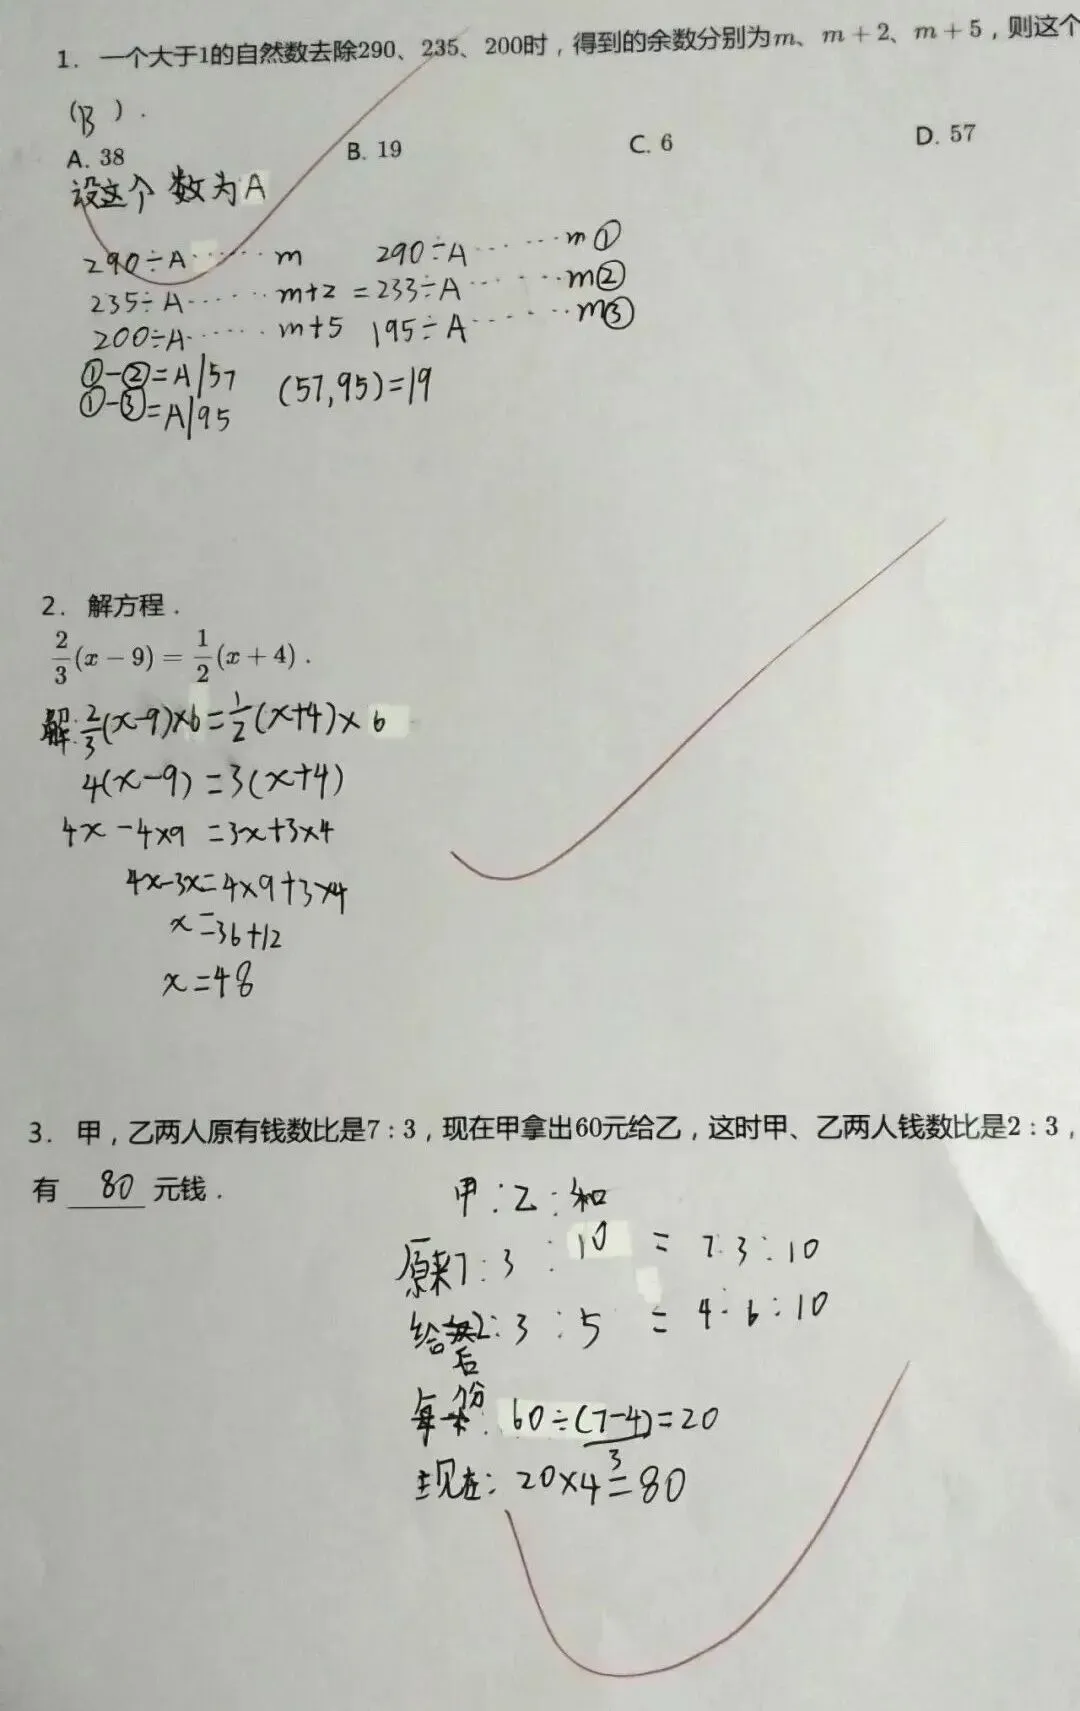 1. 一个大于1的自然数去除290、235、200时，得到的余数分别为m、m + 2、m + 5，则这个
(B).
A. 38 B. 19 C. 6 D. 57
设这个数为A
290÷A……m 290÷A……m①
235÷A……m+2 = 233÷A……m②
200÷A……m+5 195÷A……m③
①-②=A|57 (57,95)=19
①-③=A|95
2. 解方程.
2/3(x − 9) = 1/2(x + 4).
解:2/3(x-9)×6=1/2(x+4)×6
4(x-9)=3(x+4)
4x-4×9=3x+3×4
4x-3x=4×9+3×4
x=36+12
x=48
3. 甲，乙两人原有钱数比是7:3，现在甲拿出60元给乙，这时甲、乙两人钱数比是2:3，
有 80 元钱.
甲:乙:和
原来7:3:10=7:3:10
给后2:3:5=4:6:10
每份:60÷(7-4)=20
3
现在:20×4=80